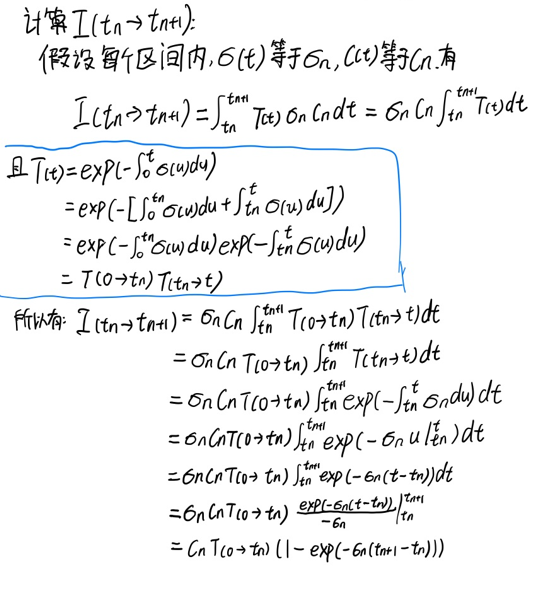 计算I(tn→tn+1):
假设每个区间内,σ(t)等于σn,C(t)等于Cn.有
I(tn→tn+1)=∫tn^tn+1 T(t)σnCndt=σnCn∫tn^tn+1 T(t)dt
且T(t)=exp(-∫0^t σ(u)du)
=exp(-[∫0^tn σ(u)du+∫tn^t σ(u)du])
=exp(-∫0^tn σ(u)du)exp(-∫tn^t σ(u)du)
=T(0→tn)T(tn→t)
所以有:I(tn→tn+1)=σnCn∫tn^tn+1 T(0→tn)T(tn→t)dt
=σnCnT(0→tn)∫tn^tn+1 T(tn→t)dt
=σnCnT(0→tn)∫tn^tn+1 exp(-∫tn^t σndu)dt
=σnCnT(0→tn)∫tn^tn+1 exp(-σnu|tn^t)dt
=σnCnT(0→tn)∫tn^tn+1 exp(-σn(t-tn))dt
=σnCnT(0→tn) exp(-σn(t-tn))/-σn |tn^tn+1
=CnT(0→tn)(1-exp(-σn(tn+1-tn)))